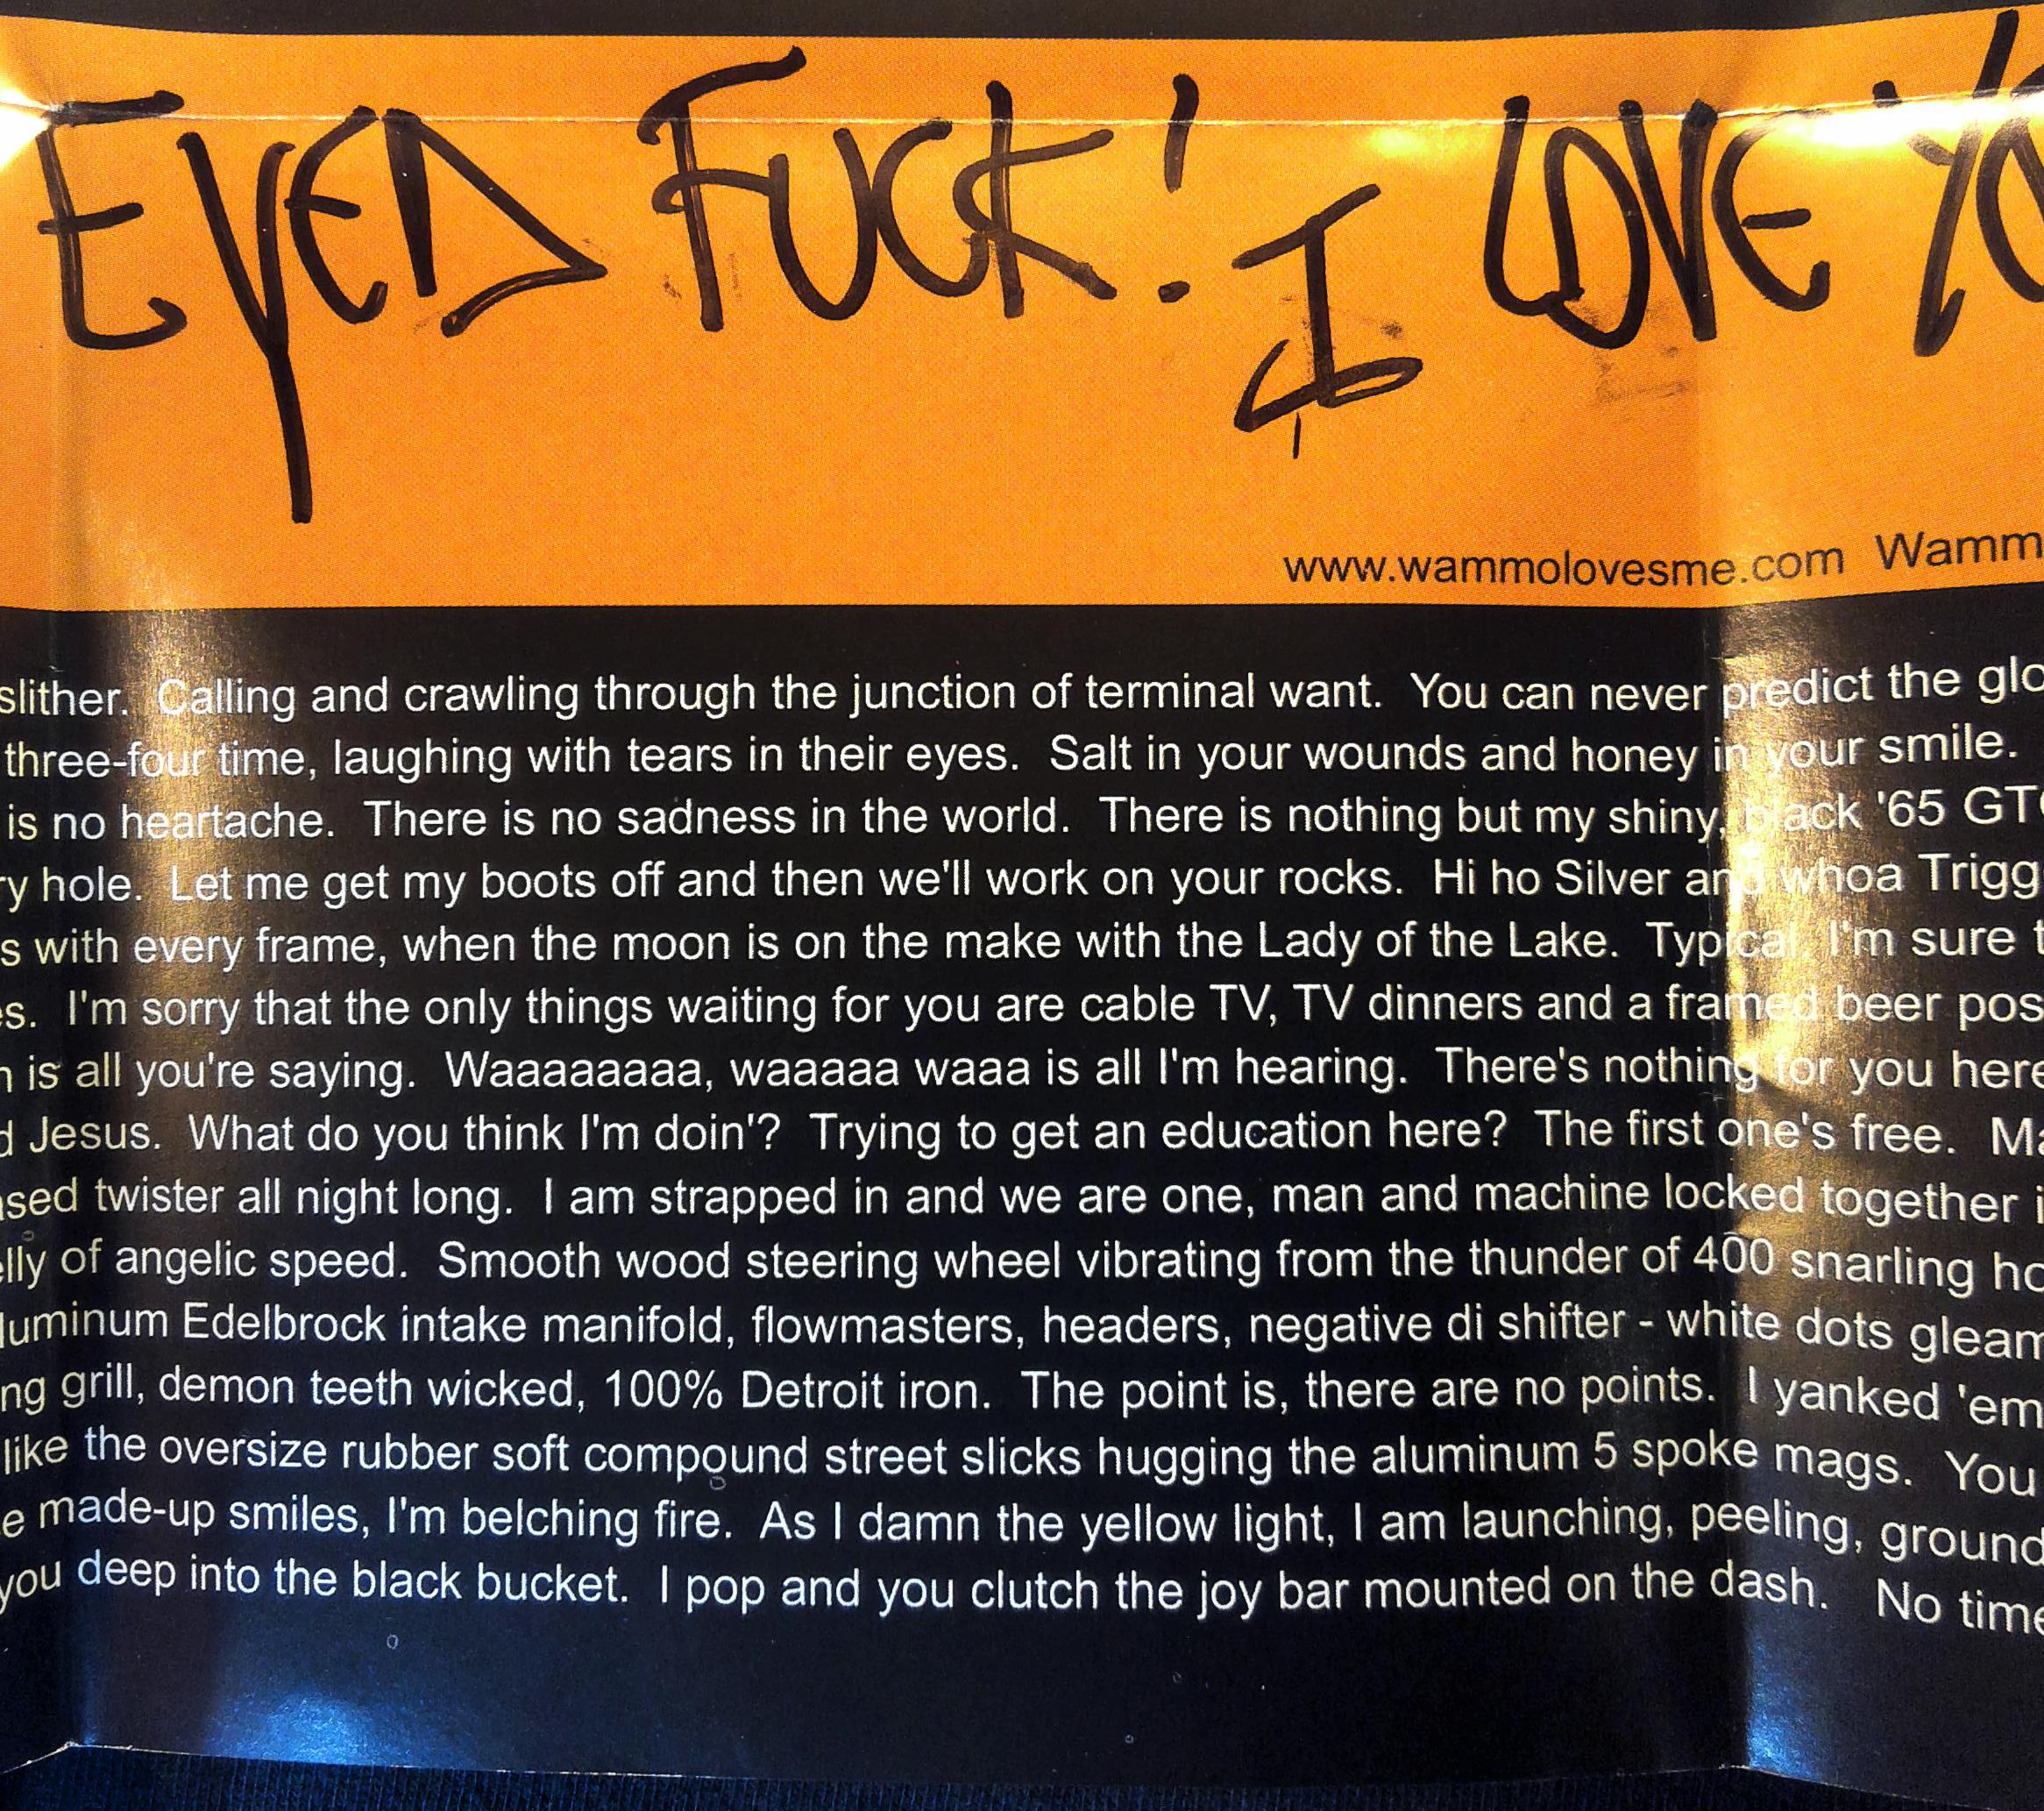 EYED FUCK! I LOVE YO
www.wammolovesme.com Wamm
slither. Calling and crawling through the junction of terminal want. You can never predict the glo
three-four time, laughing with tears in their eyes. Salt in your wounds and honey in your smile.
is no heartache. There is no sadness in the world. There is nothing but my shiny, black '65 GT
ry hole. Let me get my boots off and then we'll work on your rocks. Hi ho Silver and whoa Trigg
s with every frame, when the moon is on the make with the Lady of the Lake. Typical, I'm sure t
es. I'm sorry that the only things waiting for you are cable TV, TV dinners and a framed beer pos
n is all you're saying. Waaaaaaaa, waaaaa waaa is all I'm hearing. There's nothing for you here
d Jesus. What do you think I'm doin'? Trying to get an education here? The first one's free. Ma
sed twister all night long. I am strapped in and we are one, man and machine locked together i
elly of angelic speed. Smooth wood steering wheel vibrating from the thunder of 400 snarling ho
luminum Edelbrock intake manifold, flowmasters, headers, negative di shifter - white dots gleam
ng grill, demon teeth wicked, 100% Detroit iron. The point is, there are no points. I yanked 'em
like the oversize rubber soft compound street slicks hugging the aluminum 5 spoke mags. You
e made-up smiles, I'm belching fire. As I damn the yellow light, I am launching, peeling, ground
you deep into the black bucket. I pop and you clutch the joy bar mounted on the dash. No time